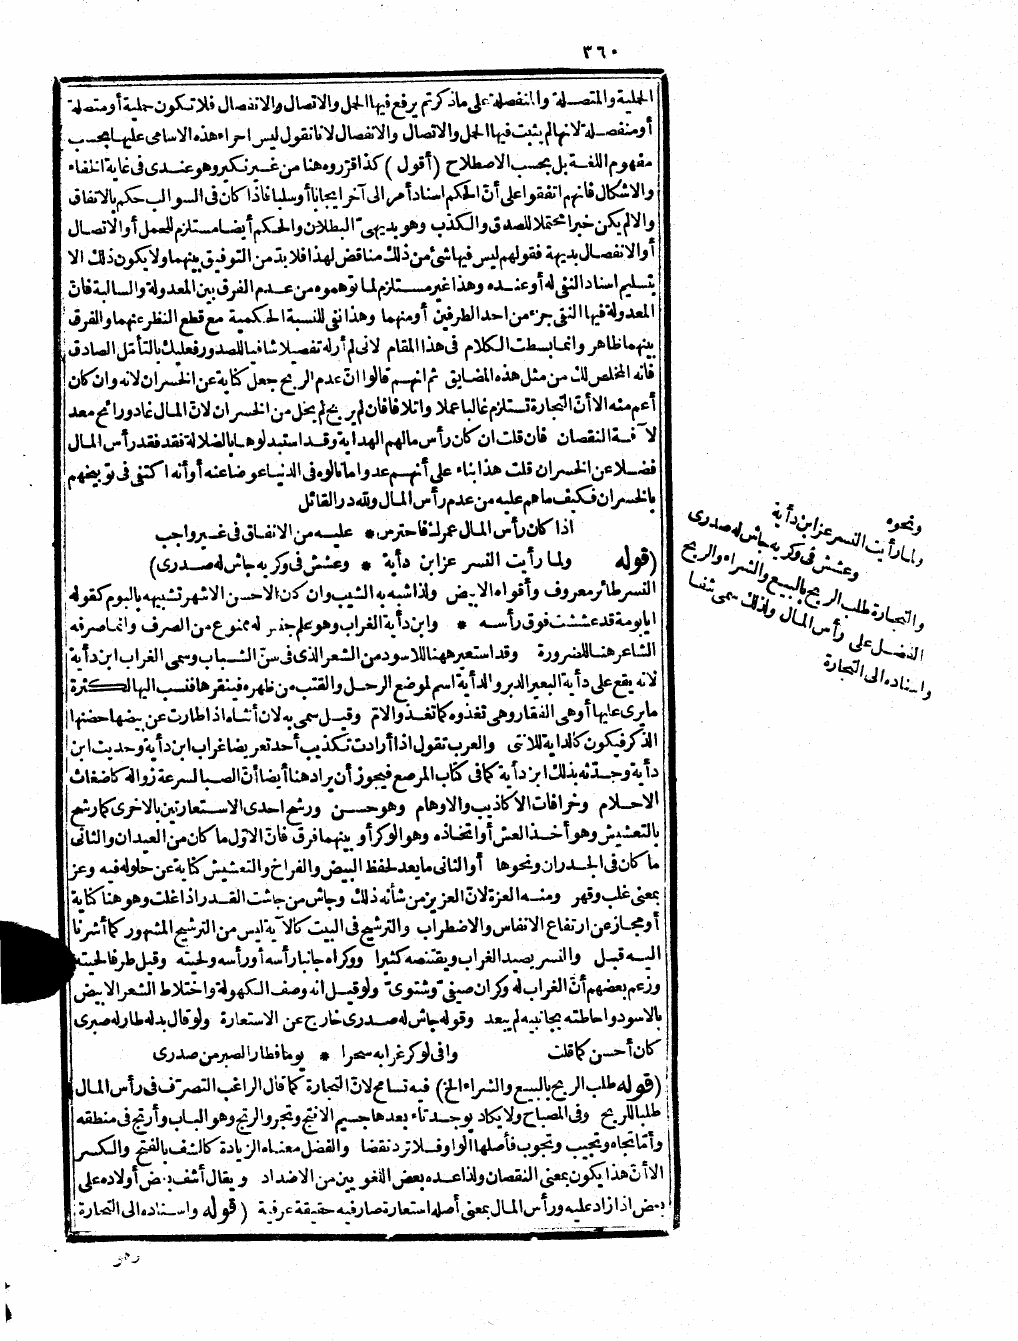 ٣٦٠
الحملية والمتصلة والمنفصلة على ماذكرتم يرفع فيها الحمل والاتصال والانفصال فلا تكون حملية أومتصلة
أومنفصلة لانها لم يثبت فيها الحمل والاتصال والانفصال لانا نقول ليس اجراء هذه الاسامى عليها بحسب
مفهوم اللغة بل بحسب الاصطلاح (أقول) كذا قرّروه هنا من غير نكير وهو عندى فى غاية الخفاء
والاشكال فانهم اتفقوا على أنّ الحكم اسناد أمر الى آخر ايجابا أوسلبا فاذا كان فى السوالب حكم بالاتفاق
والالم يكن خبرا محتملا للصدق والكذب وهو بديهىّ البطلان والحكم أيضا مستلزم للحمل أوالاتصال
أوالانفصال بديهة فقولهم ليس فيها شئ من ذلك مناقض لهذا فلابدّ من التوفيق بينهما ولا يكون ذلك الا
بتسليم اسناد النفى له أوعنده وهذا غير مستلزم لما توهموه من عدم الفرق بين المعدولة والسالبة فانّ
المعدولة فيها النفى جزء من احد الطرفين أومنهما وهذا نفى للنسبة الحكمية مع قطع النظر عنهما والفرق
بينهما ظاهر وانما بسطت الكلام فى هذا المقام لانى لم أرله تفصيلا شافيا للصدور فعليك بالتأمّل الصادق
فانه المخلص لك من مثل هذه المضايق ثم انهم قالوا انّ عدم الربح جعل كناية عن الخسران لانه وان كان
أعم منه الا أنّ التجارة تستلزم غالبا عملا واتلافا فان لم يربح لم يخل من الخسران لانّ المال غاد ورائح معد
لآفة النقصان فان قلت ان كان رأس مالهم الهداية وقد استبدلوها بالضلالة فقد فقد رأس المال
فضلا عن الخسران قلت هذا بناء على أنهم عدوا ما نالوه فى الدنيا عوضا عنه أوأنه اكتفى فى توبيخهم
بالخسران فكيف ماهم عليه من عدم رأس المال ولله در القائل
اذا كان رأس المال عمرك فاحترس * عليه من الانفاق فى غير واجب
(قوله ولما رأيت النسر عز ابن دأية * وعشش فى وكريه جاش له صدرى)
النسر طائر معروف وأقواه الابيض ولذا شبه به الشيب وان كان الاحسن الاشهر تشبيهه بالبوم كقوله
ايابومة قد عششت فوق رأسه * وابن دأية الغراب وهو علم جنس له ممنوع من الصرف وانما صرفه
الشاعر هنا للضرورة وقد استعير ههنا للاسود من الشعر الذى فى سنّ الشباب وسمى الغراب ابن دأية
لانه يقع على دأية البعير الدبر والدأية اسم لموضع الرحل والقتب من ظهره فينقرها فنسب اليها لكثرة
مايرى عليها أوهى الفقار وهى تغذوه كما تغذو الام وقيل سمى به لان أنثاه اذا طارت عن بيضها حضنها
الذكر فيكون كالداية للانثى والعرب تقول اذا أرادت تكذيب أحد تعريضا غراب ابن دأية وحديث ابن
دأية وحدّثه بذلك ابن دأية كما فى كتاب المرصع فيجوز أن يراد هنا أيضا أنّ الصبا لسرعة زواله كاضغاث
الاحلام وخرافات الأكاذيب والاوهام وهو حسن ورشح احدى الاستعارتين بالاخرى كما رشح
بالتعشيش وهو أخذ العش أواتخاذه وهو الوكر أو بينهما فرق فانّ الاوّل ما كان من العيدان والثانى
ما كان فى الجدران ونحوها أوالثانى مايعد لحفظ البيض والفراخ والتعشيش كناية عن حلوله فيه وعز
بمعنى غلب وقهر ومنه العزة لانّ العزيز من شأنه ذلك وجاش من جاشت القدر اذا غلت وهو هنا كناية
أومجاز عن ارتفاع الانفاس والاضطراب والترشيح فى البيت كالآية ليس من الترشيح المشهور كما أشرنا
اليه قبل والنسر يصيد الغراب ويقتنصه كثيرا ووكراه جانبا رأسه أورأسه ولحيته وقيل طرفا لحيته
وزعم بعضهم أنّ الغراب له وكران صيفىّ وشتوىّ ولو قيل انه وصف الكهولة واختلاط الشعر الابيض
بالاسود واحاطته بجانبيه لم يبعد وقوله جاش له صدرى خارج عن الاستعارة ولو قال بدله طار له صبرى
كان أحسن كما قلت وافى لوكر غرابه سحرا * يوما فطار الصبر من صدرى
(قوله طلب الربح بالبيع والشراء الخ) فيه تسامح لانّ التجارة كما قال الراغب التصرّف فى رأس المال
طلبا للربح وفى المصباح ولا يكاد يوجد تاء بعدها جيم الا نتج وتجر والرتج وهو الباب وأرتج فى منطقه
وأمّا تجاه وتجيب وتجوب فأصلها الواو فلا ترد نقضا والفضل معناه الزيادة كالشف بالفتح والكسر
الا أنّ هذا يكون بمعنى النقصان ولذا عده بعض اللغويين من الاضداد ويقال أشف بعض أولاده على
بعض اذا زاد عليه ورأس المال بمعنى أصله استعارة صارفيه حقيقة عرفية (قوله واسناده الى التجارة
وهو
ونحوه
ولما رأيت النسر عز ابن دأية
وعشش فى وكريه جاش له صدرى
والتجارة طلب الربح بالبيع والشراء والربح
الفضل على رأس المال ولذلك سمى شفا
واسناده الى التجارة